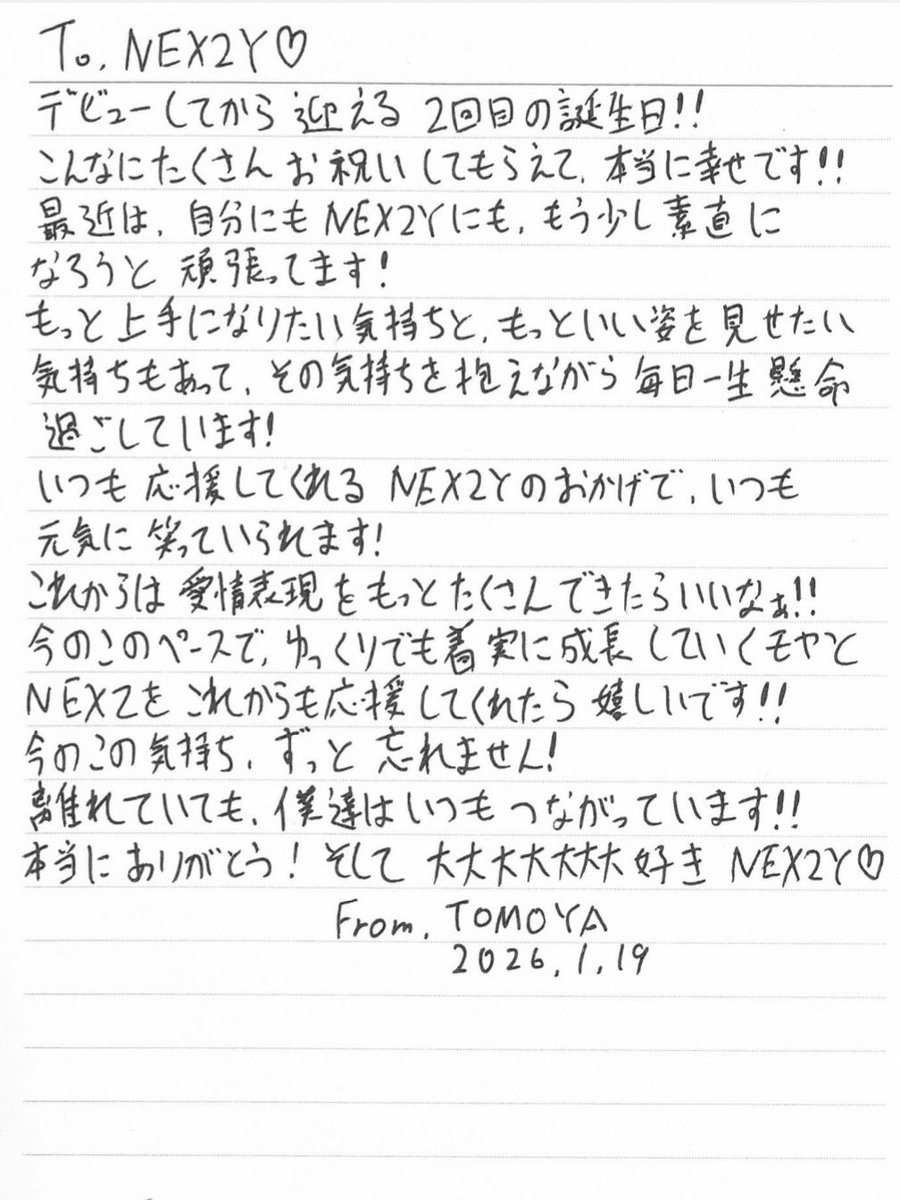 To. NEX2Y♡
デビューしてから 迎える 2回目の誕生日!!
こんなにたくさん お祝いしてもらえて、本当に幸せです!!
最近は、自分にも NEX2Yにも、もう少し素直に
なろうと 頑張ってます!
もっと上手になりたい気持ちと、もっといい姿を見せたい
気持ちもあって、その気持ちを抱えながら毎日一生懸命
過ごしています!
いつも 応援してくれる NEX2Yのおかげで、いつも
元気に 笑っていられます!
これからは 愛情表現をもっとたくさんできたらいいなぁ!!
今のこのペースで、ゆっくりでも着実に成長していくモヤと
NEXZを これからも応援してくれたら 嬉しいです!!
今のこの気持ち、ずっと 忘れません!
離れていても、僕達はいつも つながっています!!
本当にありがとう! そして 大大大大大大大好き NEX2Y♡
From. TOMOYA
2026.1.19